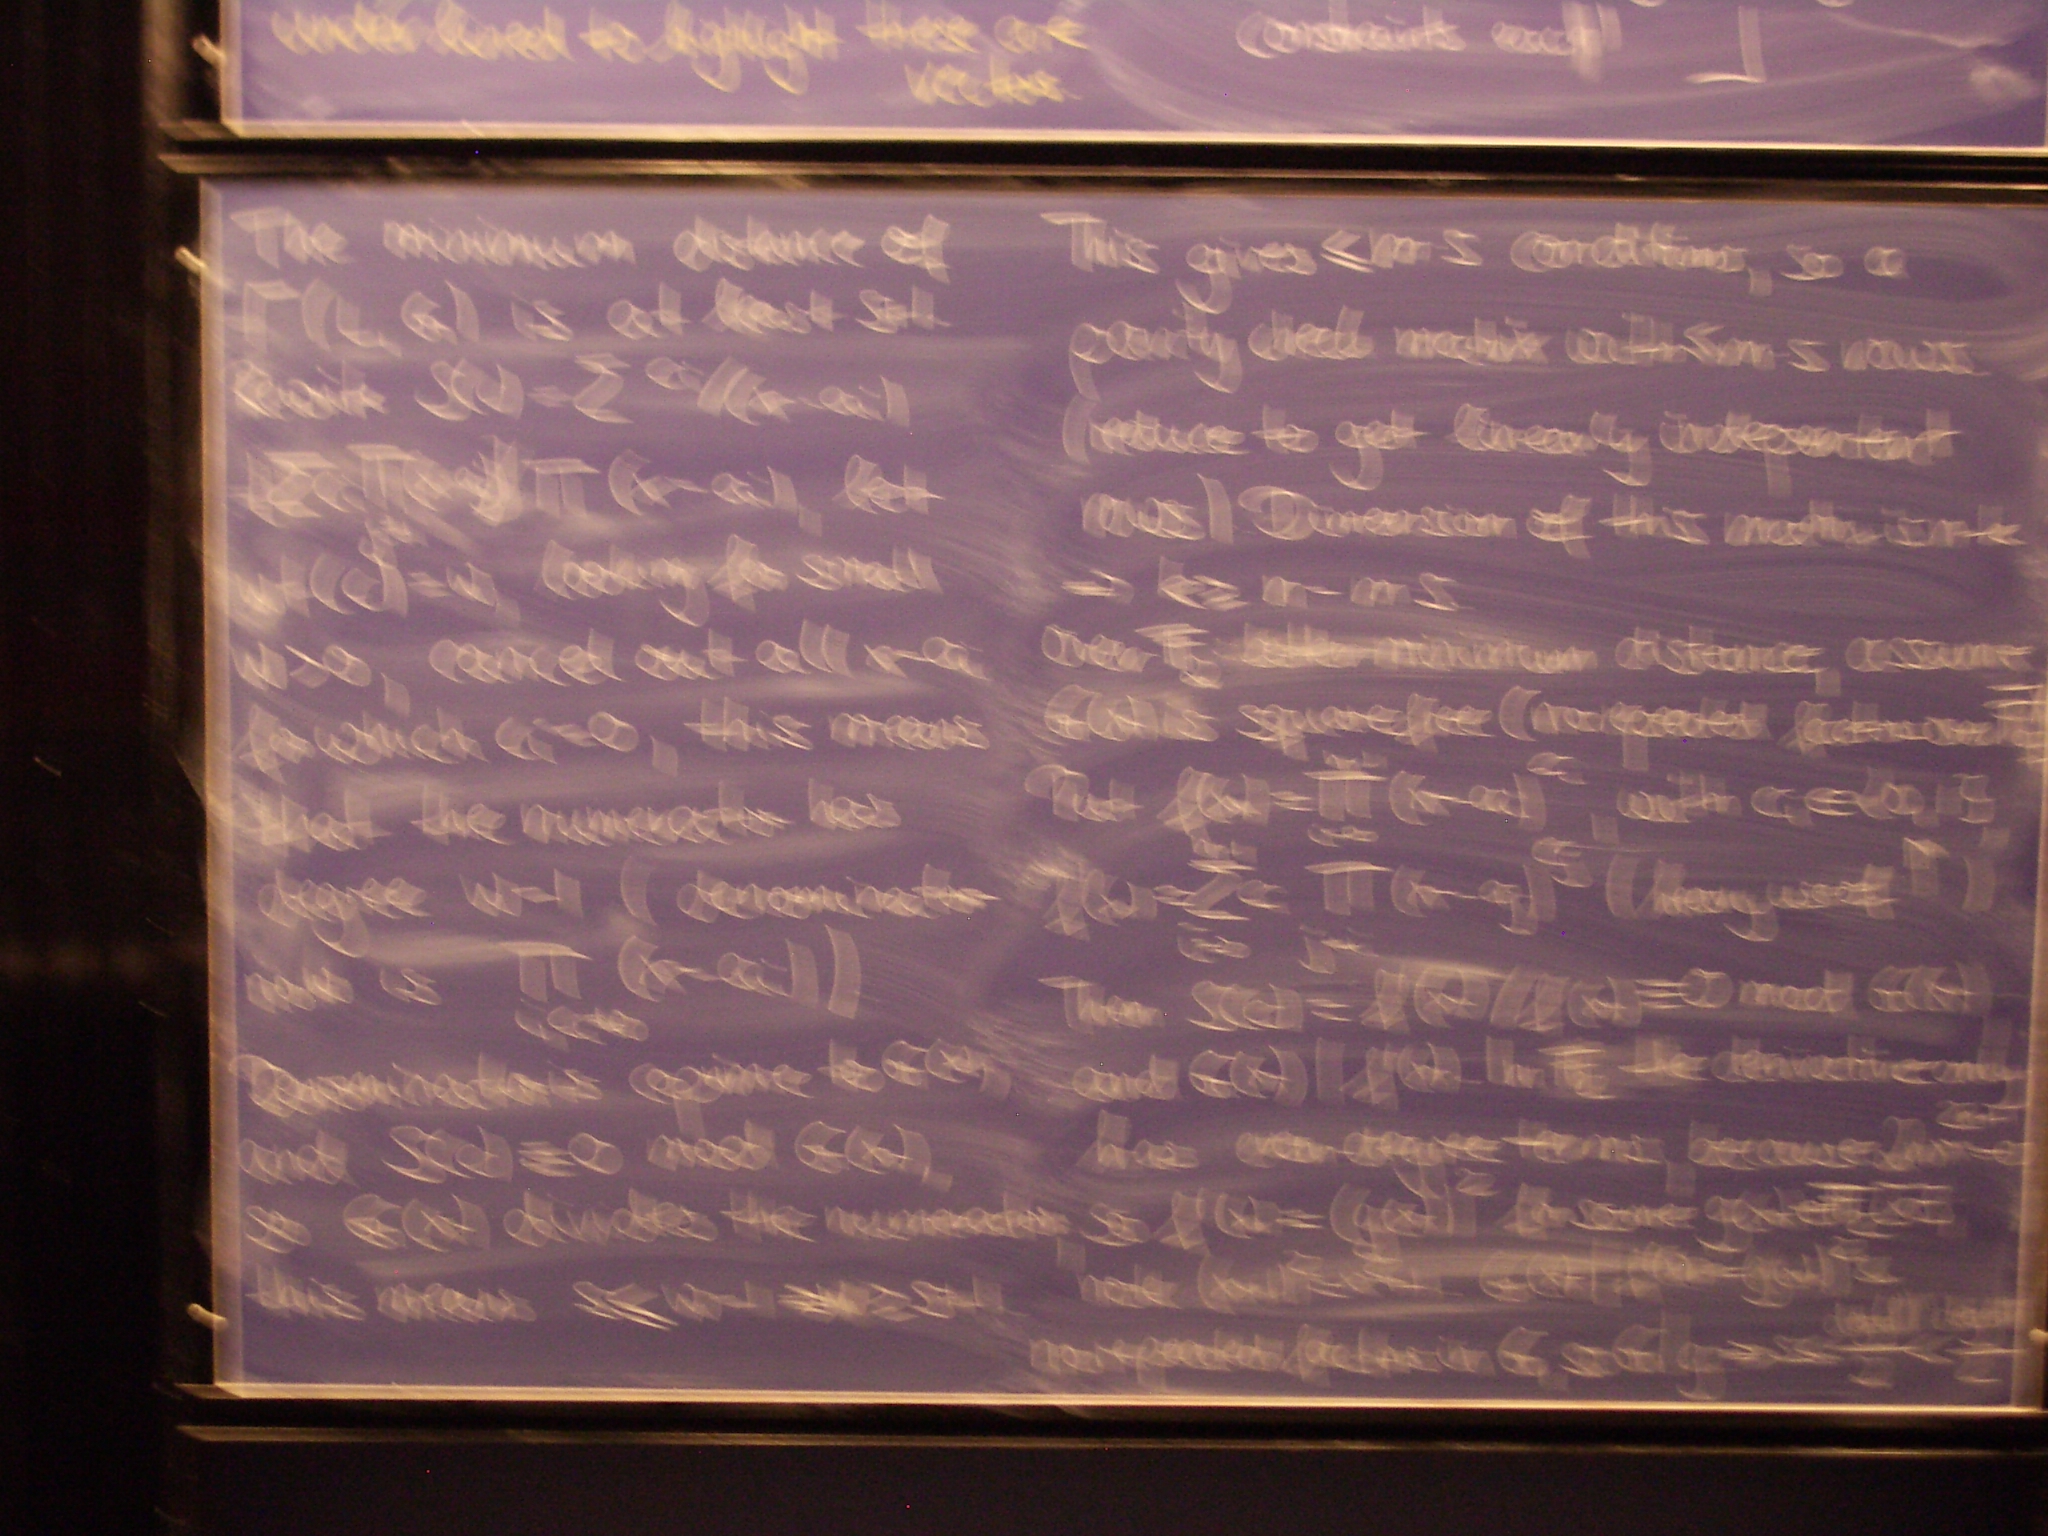 underlined to highlight these are
vectors
constraints
The minimum distance of
Γ(L, G) is at least s+1
Rewrite S(c) = Σ ci/(x-ai)
Π (x-ai), let
wt(c) = w, looking for small
w>0, cancel out all x-ai
for which ci=0, this means
that the numerator has
degree w-1 (denominator
now is Π (x-ai))
Denominator is coprime to G(x),
and S(c)≡0 mod G(x),
so G(x) divides the numerator
this means s≤w-1 w≥s+1.
This gives ≤m·s conditions, so a
parity check matrix with ≤m·s rows
(reduce to get linearly independent
rows) Dimension of this matrix is n-k
⇒ k≥ n-m·s
over F2 minimum distance, assume
G(x) is square free (no repeated factors over
Put f(x)=Π(x-ai)^ci with ci∈{0,1}
f'(x)=Σ ci Π (x-aj)^cj
Then S(c)=f'(x)/f(x)≡0 mod G(x)
and G(x)|f'(x). In F2 the derivative only
has even degree terms, because
so f'(x)=(g(x))² for some g(x)
note (x+1)²=x²+1
no repeated factors in G, so G|g